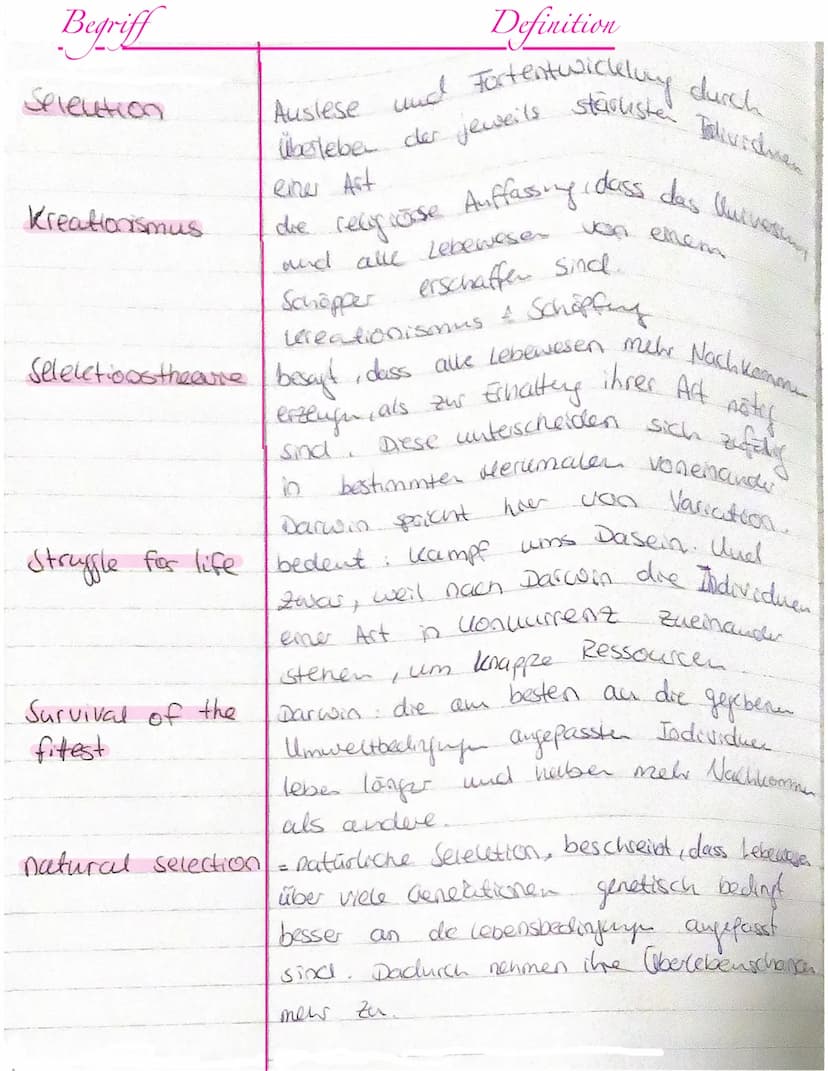 Begriff Definition
Selektion Auslese und Fortentwicklung durch
Überleben der jeweils stärksten Individuen
einer Art
Kreationismus die religiöse Auffassung, dass das Universum
und alle Lebewesen von einem
Schöpper erschaffen sind.
Kreationismus ≙ Schöpfung
Selektionstheorie besagt, dass alle Lebewesen mehr Nachkommen
erzeugen, als zur Erhaltung ihrer Art nötig
sind. Diese unterscheiden sich zufällig
in bestimmten Merkmalen voneinander
Darwin spricht hier von Variation.
Struggle for life bedeut: Kampf ums Dasein. Und
zwar, weil nach Darwin die Individuen
einer Art in Konkurrenz zueinander
stehen, um knappe Ressourcen
Survival of the Darwin: die am besten an die gegebenen
fittest Umweltbedingungen angepassten Individuen
leben länger und haben mehr Nachkommen
als andere.
natural selection = natürliche Selektion, beschreibt, dass Lebewesen
über viele Generationen genetisch bedingt
besser an die Lebensbedingungen angepasst
sind. Dadurch nehmen ihre Überlebenschancen
mehr zu.